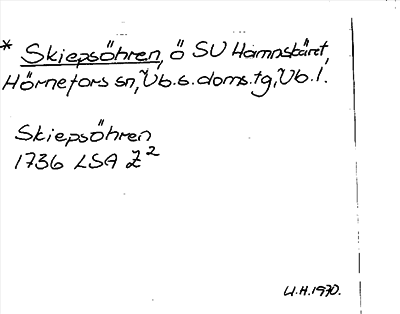 * Skiepsöhren, ö SU Hamnskäret,
Hörnefors sn, Vb.s.doms.tg, Vb.l.
Skiepsöhren
1736 LSA Z²
U.H.1970.